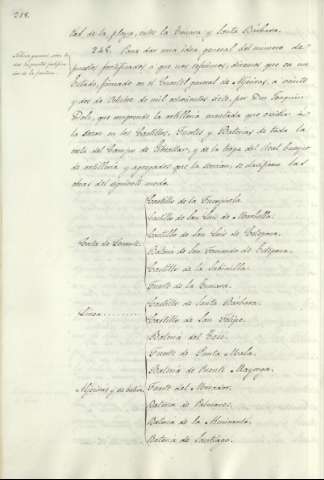 218.
tad de la playa, entre la Tunara y Santa Bárbara.
248. Para dar una idea general del numero de
puestos fortificados a que nos referimos, diremos que en un
Estado, firmado en el Cuartel general de Algeciras, a veinte
y dos de Octubre de mil setecientos siete, por Don Joaquin
Dolz, que comprende la artilleria montada que existia en
la sazon en los Castillos, Fuertes y Baterias de toda la
costa del Campo de Gibraltar, y de la tropa del Real Cuerpo
de artilleria y agregados que la servian, se clasifican las
obras del siguiente modo.
Castillo de la Fuengirola.
Castillo de San Luis de Marbella.
Castillo de San Luis de Estepona.
Costa de Levante.
Bateria de San Fernando de Estepona.
Castillo de la Sabinilla.
Fuerte de la Tunara.
Castillo de Santa Bárbara.
Linea
Castillo de San Felipe.
Bateria del
Fuerte de Punta Mala.
Bateria de Puente Mayorga.
Algeciras y su bahia.
Fuerte del Mirador.
Bateria de Palmones.
Bateria de la Almiranta.
Bateria de Santiago.